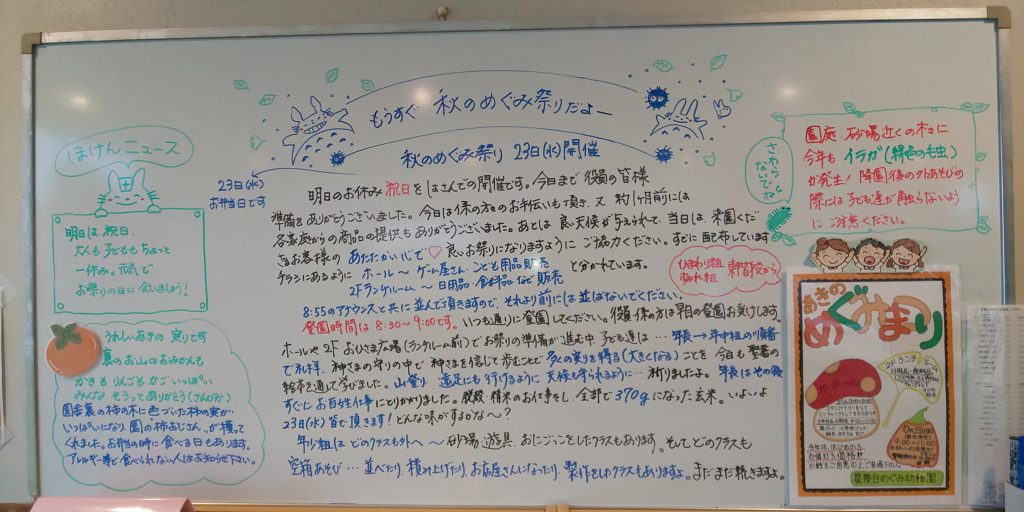 もうすぐ 秋のめぐみ祭りだよー
秋のめぐみ祭り 23日(水)開催
23日(水)
お弁当日です
明日のお休み 祝日をはさんでの開催です。今日まで 役員の皆様
準備をありがとうございました。今日は係の方々のお手伝いも頂き、又 約1ヶ月前には
各家庭からの商品の提供もありがとうございました。あとは 良い天候が与えられて、当日は 来園くだ
さるお客様の あたたかい心で♡良いお祭りになりますように ご協力ください。すでに配布しています
チラシにあるように ホール〜ゲーム屋さん、こども用品販売
2Fランチルーム〜日用品・食料品など販売
と分かれています。
8:55のアナウンスと共に並んで頂きますので、それより前には並ばないでください。
登園時間は 8:30〜9:00です。いつも通りに登園してください。役員・係の方は早目の登園お受けします。
ホールや2F おひさま広場(ランチルーム前)でお祭りの準備が進む中、子ども達は…年長→年中組の順番
で礼拝。神さまの守りの中で 神さまを信じて歩むことで 多くの実を得る(大きくなる)ことを 今日も聖書の
絵本を通して学びました。山登り 遠足にも行けるように 天候も守られるように…祈りましたよ。年長はその後
すぐに お米仕事にとりかかりました。脱穀・精米のお仕事をし 全部で370gになった玄米。いよいよ
23日(水)皆で頂きます!どんな味がするかな〜?
年少組は どのクラスも外へ〜砂場、遊具、おにごっこをしたクラスもあります。そしてどのクラスも
空箱あそび…並べたり、積み上げたり、お店屋さんになったり、製作をしたクラスもありますよ。まだまだ続きますよ。
ほけんニュース
明日は 祝日、
大人も子どもも ちょっと
一休み。元気で
お祭りの日に会いましょう!
うれしいあきの 実りです
裏のお山のおみかんも
かきも りんごも かごいっぱい
みんな そろってありがとう(さんびか)
園舎裏の柿の木に色づいた柿の実が
いっぱいになり、園の柿おじさんが獲って
くれました。お弁当の時に食べる日もあります。
アレルギー等で食べられない人はお知らせ下さい。
さわらないでね
園庭、砂場近くの木々に
今年も イラガ(緑色の毛虫)
が発生!降園後の外あそびの
際には子ども達が触らないよう
にご注意ください。
ひまわり組
あきの
めぐみまつり
1F ホール
2F ランチルーム
10月23日(水)
星陵台めぐみ幼稚園